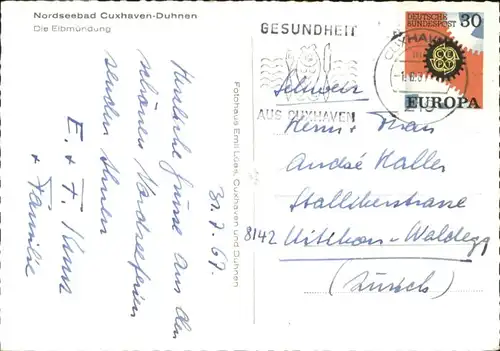 Nordseebad Cuxhaven-Duhnen
Die Elbmündung
31. 7. 67.
Herzliche Grüsse aus den
schönen Nordseeferien
senden Ihnen
E. + F. Kunz
+ Familie
Fotohaus Emil Lües, Cuxhaven und Duhnen
GESUNDHEIT
AUS CUXHAVEN
CUXHAVEN
DEUTSCHE
BUNDESPOST
30
EUROPA
Schweiz
Herrn + Frau
André Haller
Stallikerstrasse
8142 Uitikon-Waldegg
(Zürich)